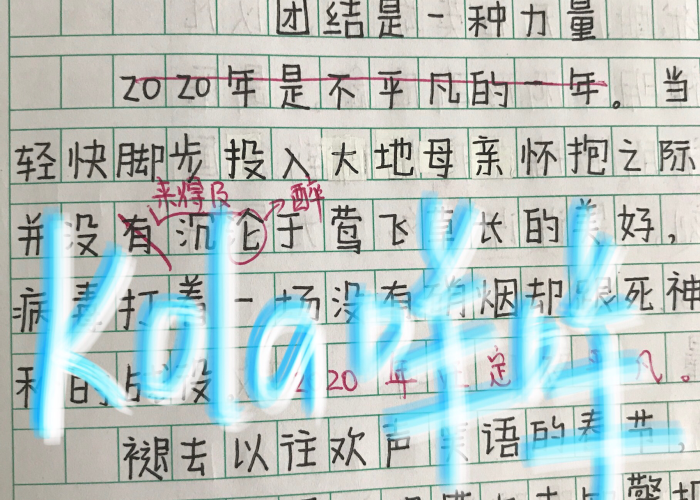 团结是一种力量
2020年是不平凡的一年。当
轻快脚步投入大地母亲怀抱之际
来得及 醉
并没有沉沦于莺飞草长的美好,
病毒打着一场没有硝烟却跟死神
20年 定 凡。
褪去以往欢声笑语的春节,
Kola咩咩